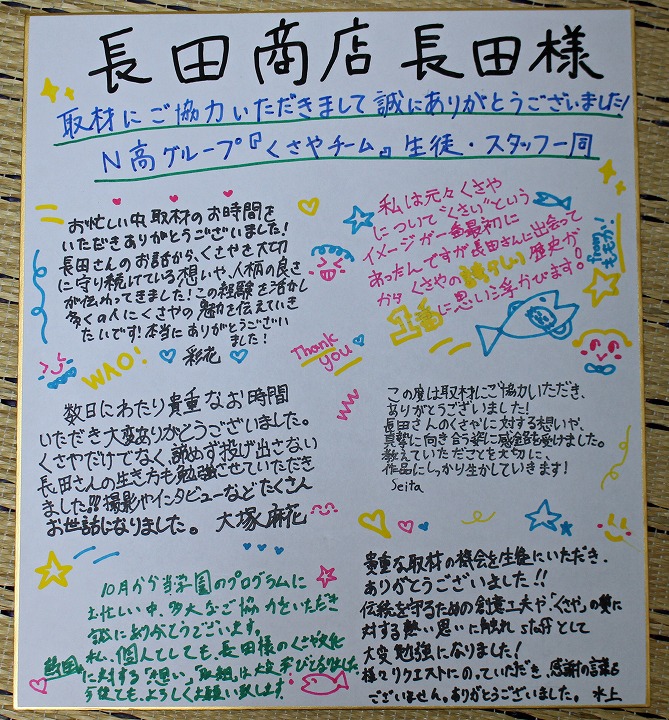 長田商店 長田様
取材にご協力いただきまして誠にありがとうございました!
N高グループ『くさやチーム』生徒・スタッフ一同
お忙しい中取材のお時間を
いただきありがとうございました!
長田さんのお話から、くさやを大切
に守り続けている想いや、人柄の良さ
が伝わってきました!この経験を活かし
多くの人にくさやの魅力を伝えていき
たいです!本当にありがとうござい
ました!
彩花
WAO!
私は元々くさや
について"くさい"という
イメージが一番最初に
あったんですが長田さんに出会って
から くさやの誇らしい歴史が
1番に思い浮かびます!
from
Thank
you
数日にわたり貴重なお時間
いただき大変ありがとうございました。
くさやだけでなく、諦めず投げ出さない
長田さんの生き方も勉強させていただき
ました!!撮影やインタビューなどたくさん
お世話になりました。 大塚麻花
この度は取材にご協力いただき、
ありがとうございました!
長田さんのくさやに対する想いや、
真摯に向き合う姿に感銘を受けました。
教えていただことを大切に、
作品にしっかり生かしていきます!
Seita
10月から当学園のプログラムに
お忙しい中、多大なご協力をいただき
誠にありがとうございます。
私、個人としても、長田様のくさや文化
に対する「想い」、「取組」は大変学びとなりました。
今後とも、よろしくお願い致します
貴重な取材の機会を生徒にいただき、
ありがとうございました!!
伝統を守るための創意工夫や、「くさや」の質に
対する熱い思いに触れ staffとして
大変勉強になりました!
様々リクエストにのっていただき、感謝の言葉も
ございません。ありがとうございました。 水上